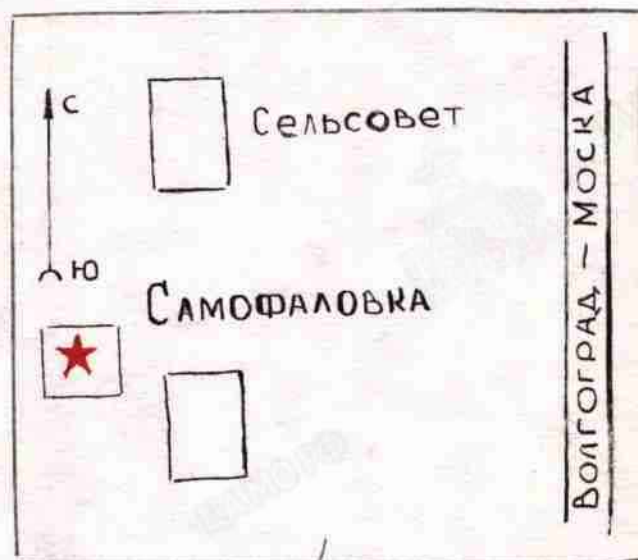 С
Сельсовет
Ю
Самофаловка
Волгоград – Моска